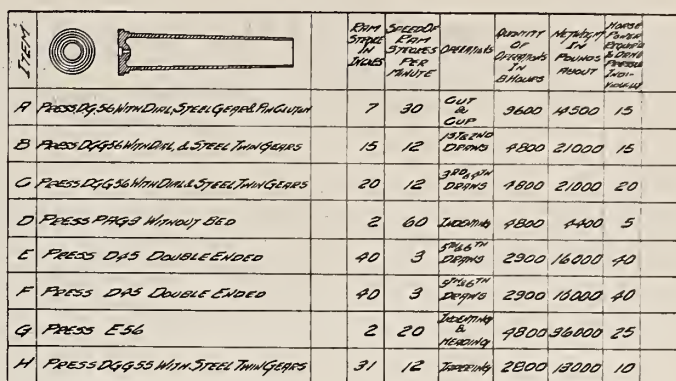 ITEM
RAM STROKE IN INCHES
SPEED OF RAM STROKES PER MINUTE
OPERATIONS
QUANTITY OF OPERATIONS IN 8 HOURS
NET WEIGHT IN POUNDS ABOUT
HORSE POWER REQUIRED TO DRIVE PRESSES INDIVIDUALLY
A PRESS DG 56 WITH DIAL, STEEL GEAR & PIN CLUTCH 7 30 CUT & CUP 9600 14500 15
B PRESS DGG56 WITH DIAL, & STEEL TWIN GEARS 15 12 1ST & 2ND DRAWS 4800 21000 15
C PRESS DGG56 WITH DIAL & STEEL TWIN GEARS 20 12 3RD & 4TH DRAWS 4800 21000 20
D PRESS PAG3 WITHOUT BED 2 60 INDENTING 4800 4400 5
E PRESS D45 DOUBLE ENDED 40 3 5TH & 6TH DRAWS 2900 16000 40
F PRESS D45 DOUBLE ENDED 40 3 DRAWS 2900 16000 40
G PRESS E56 2 20 INDENTING & HEADING 4800 36000 25
H PRESS DGG55 WITH STEEL TWIN GEARS 31 12 TAPERING 2800 13000 10